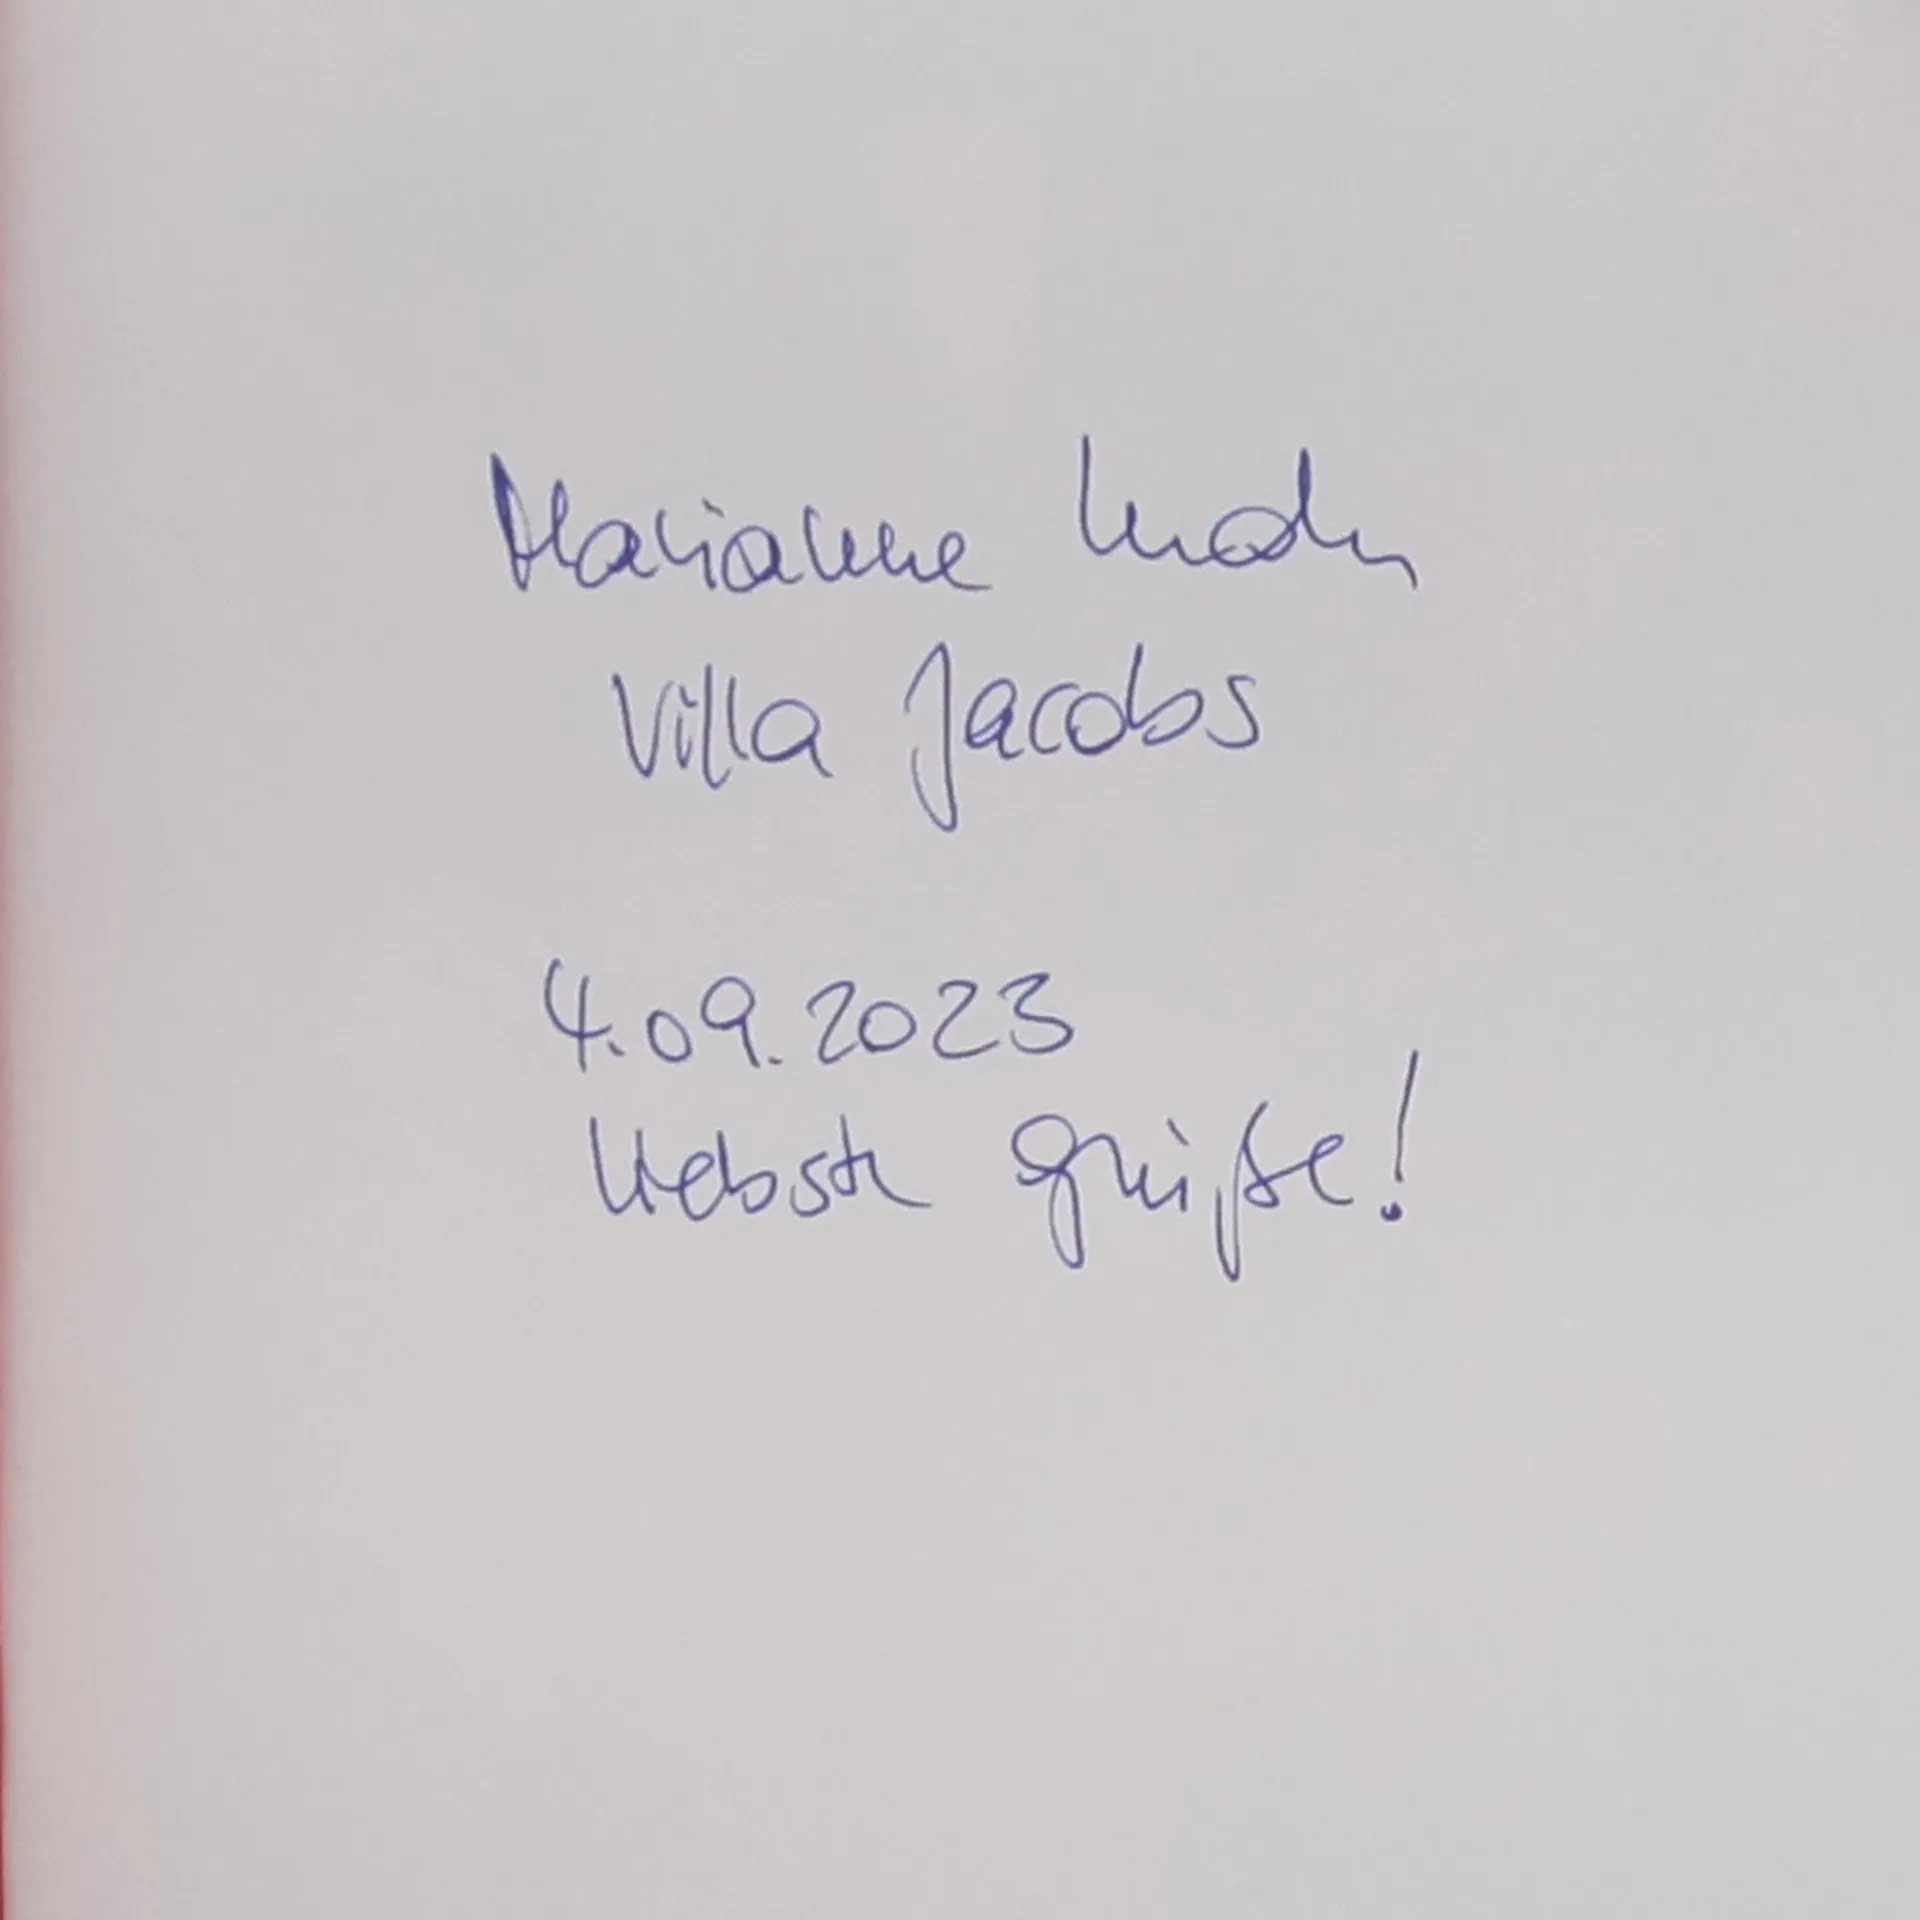 Marianne Ludes
Villa Jacobs
4.09.2023
Liebste Grüße!